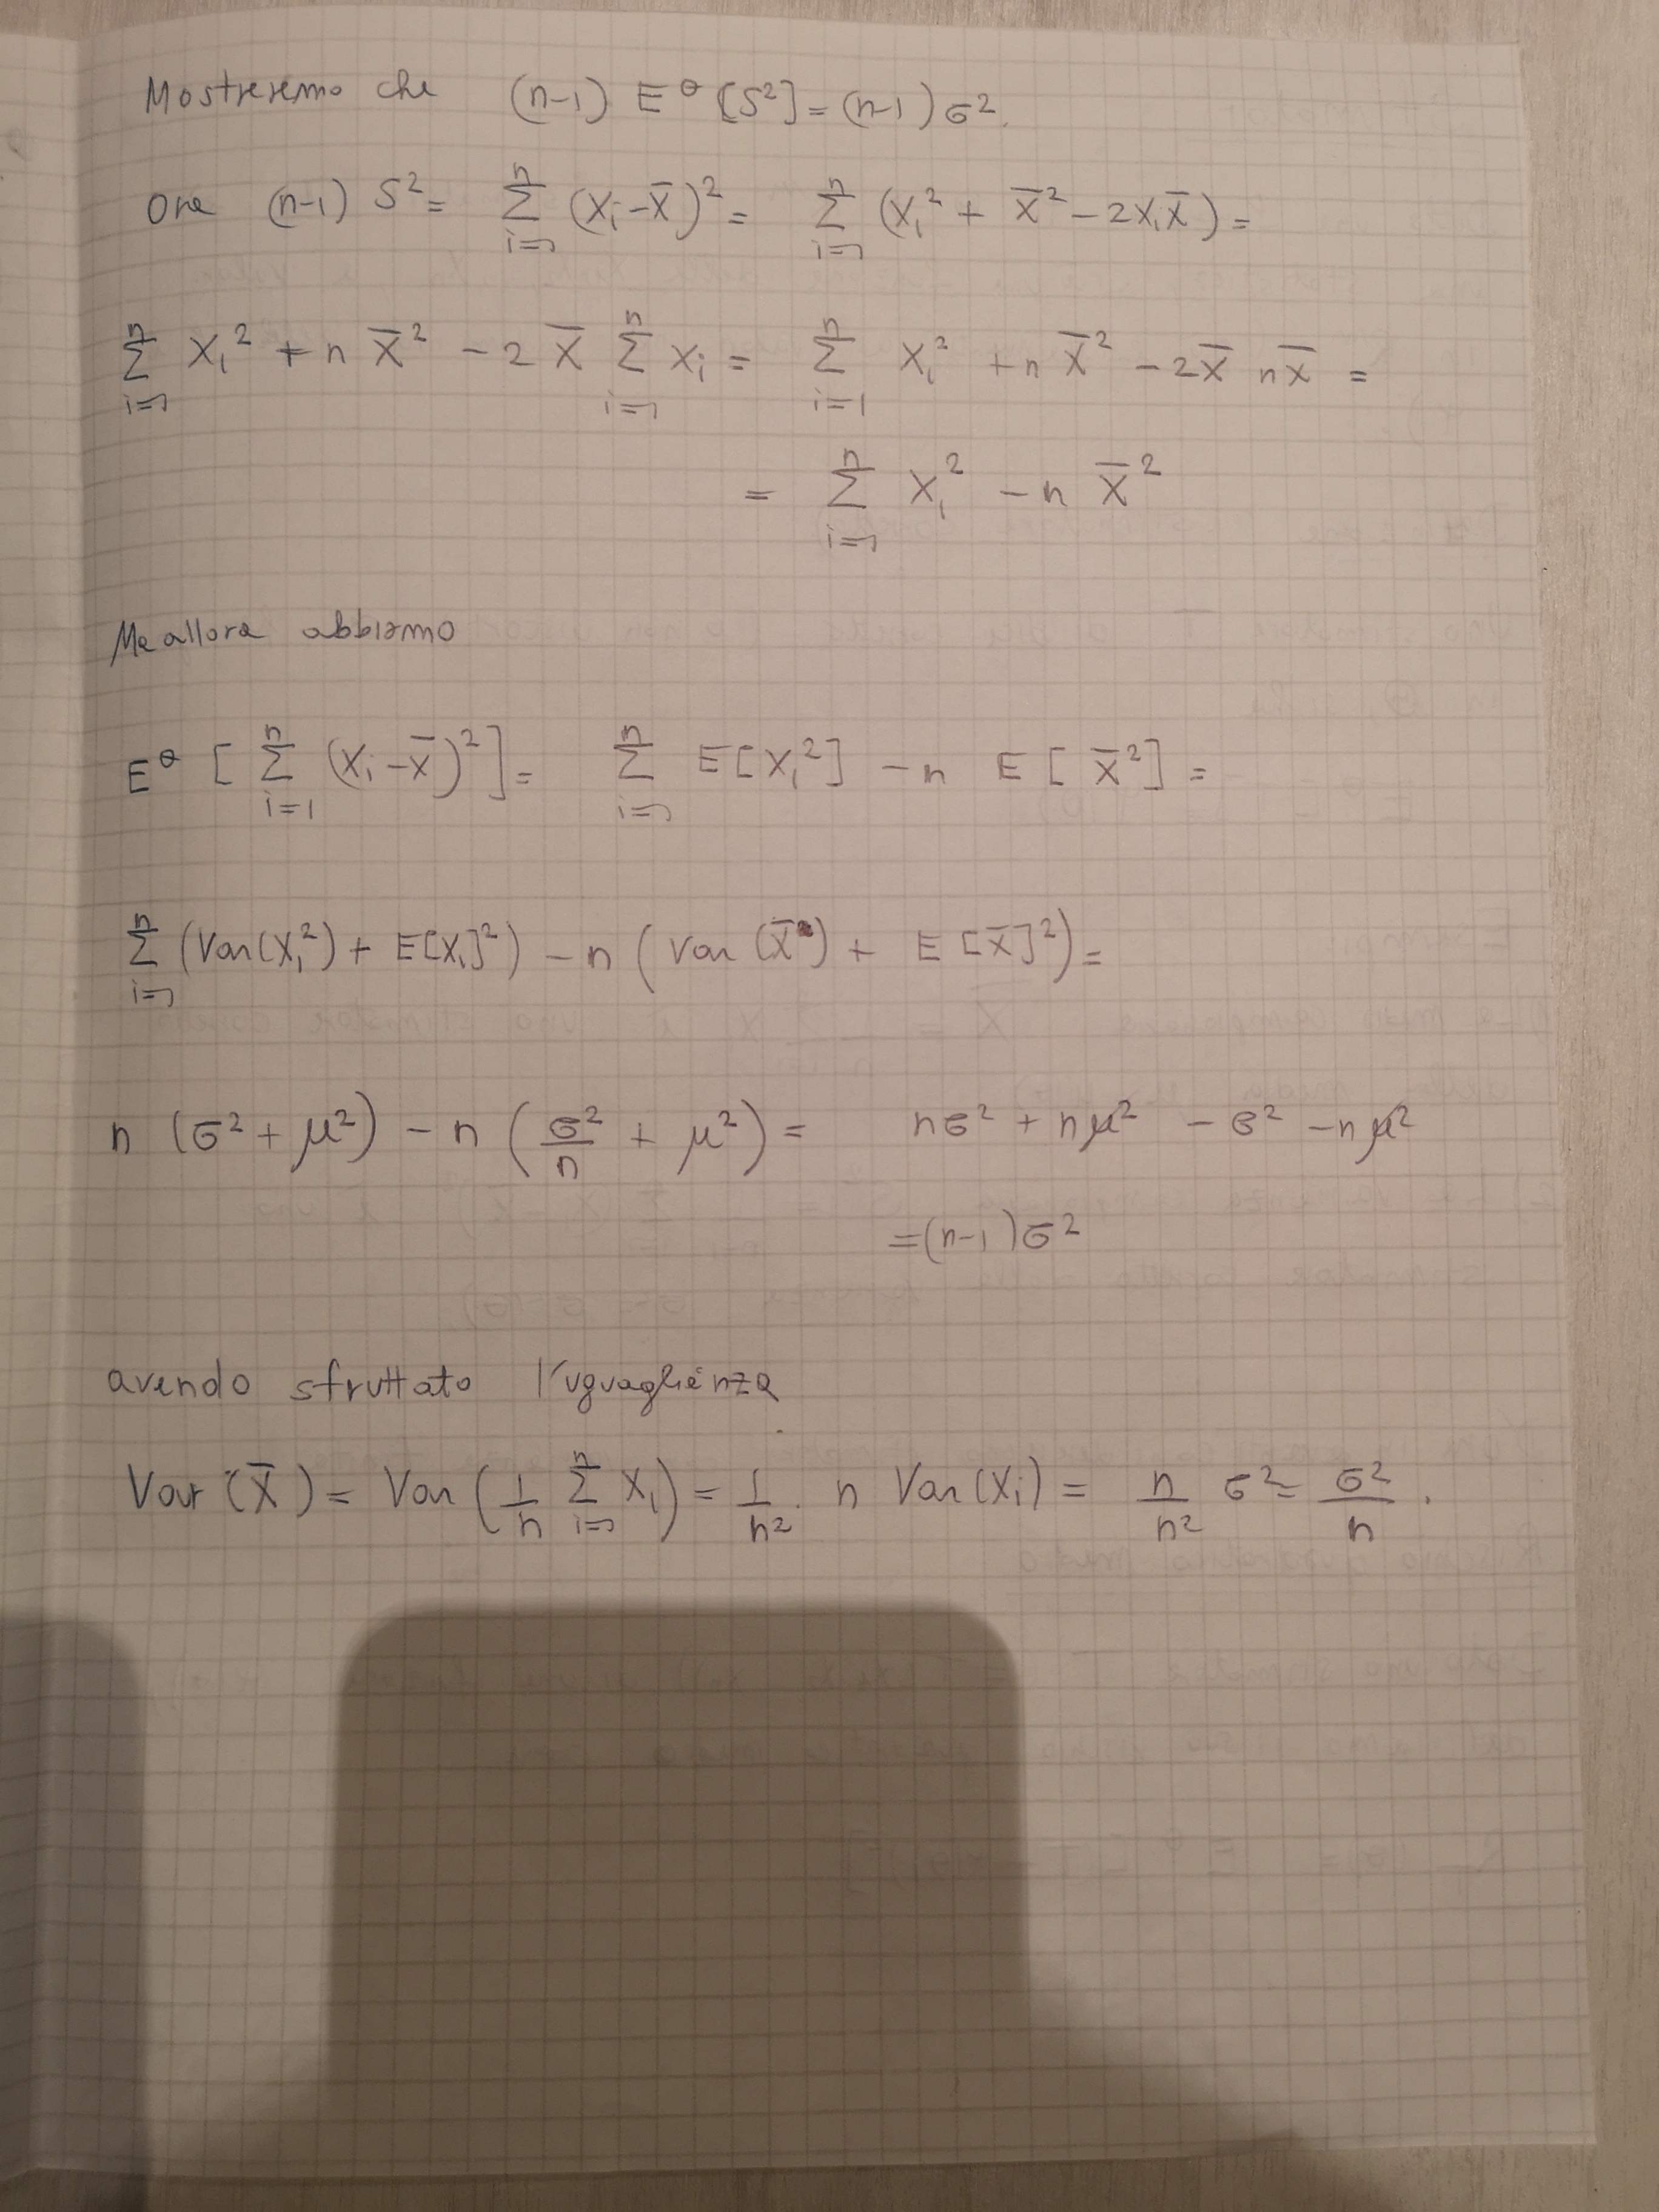 Mostreremo che (n-1) E^θ [S²] = (n-1) σ².
Ora (n-1) S² = Σ_{i=1}^n (X_i - X̄)² = Σ_{i=1}^n (X_i² + X̄² - 2X_i X̄) =
Σ_{i=1}^n X_i² + n X̄² - 2 X̄ Σ_{i=1}^n X_i = Σ_{i=1}^n X_i² + n X̄² - 2X̄ n X̄ =
= Σ_{i=1}^n X_i² - n X̄²
Ma allora abbiamo
E^θ [ Σ_{i=1}^n (X_i - X̄)² ] = Σ_{i=1}^n E[X_i²] - n E[X̄²] =
Σ_{i=1}^n (Var(X_i²) + E[X_i]²) - n (Var(X̄) + E[X̄]²) =
n (σ² + μ²) - n (σ²/n + μ²) = nσ² + nμ² - σ² - nμ²
= (n-1)σ²
avendo sfruttato l'uguaglianza
Var(X̄) = Var(1/n Σ_{i=1}^n X_i) = 1/n² · n Var(X_i) = n/n² σ² = σ²/n .